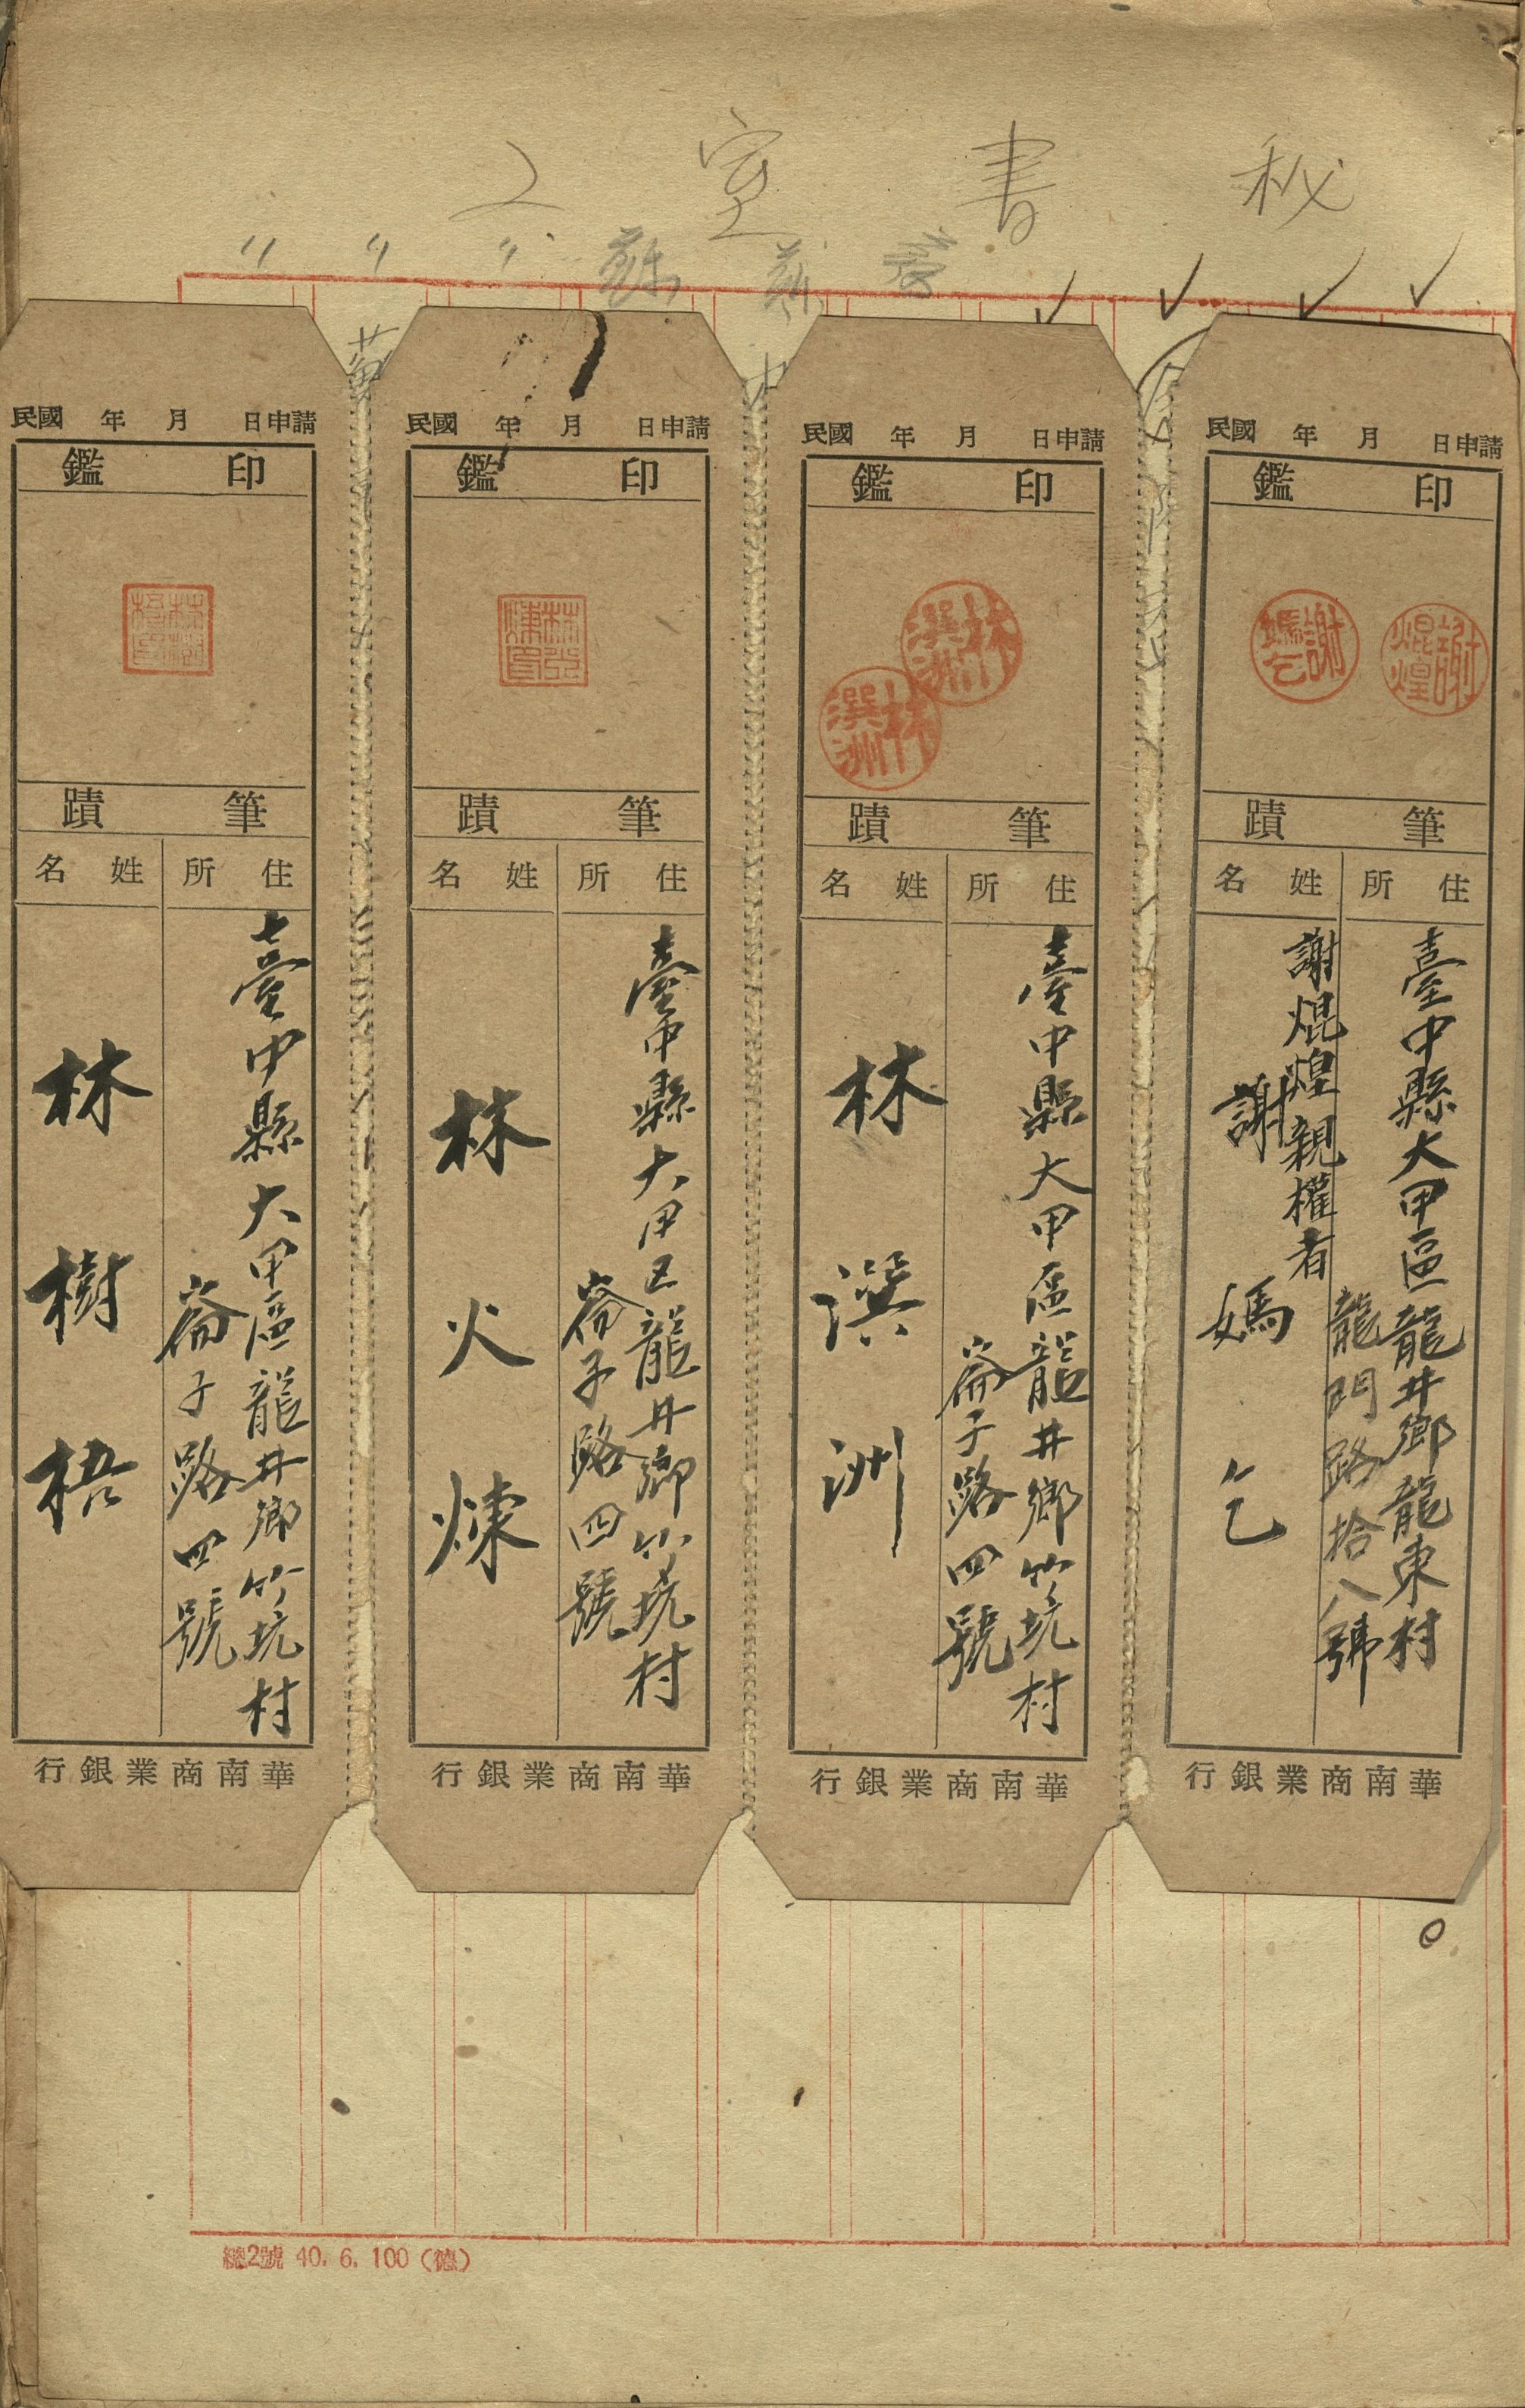 秘書室
請申日 月 年 國民
印鑑
謝焜煌
謝媽乞
筆蹟
住所 姓名
臺中縣大甲區龍井鄉龍東村
龍門路拾八號
謝焜煌親權者
謝媽乞
華南商業銀行
請申日 月 年 國民
印鑑
林澒洲
林澒洲
筆蹟
住所 姓名
臺中縣大甲區龍井鄉竹坑村
崙子路四號
林澒洲
華南商業銀行
請申日 月 年 國民
印鑑
筆蹟
住所 姓名
臺中縣大甲区龍井鄉竹坑村
崙子路四號
林火煉
華南商業銀行
請申日 月 年 國民
印鑑
林樹梧印
筆蹟
住所 姓名
臺中縣大甲區龍井鄉竹坑村
崙子路四號
林樹梧
華南商業銀行
總2號 40. 6. 100 (德)